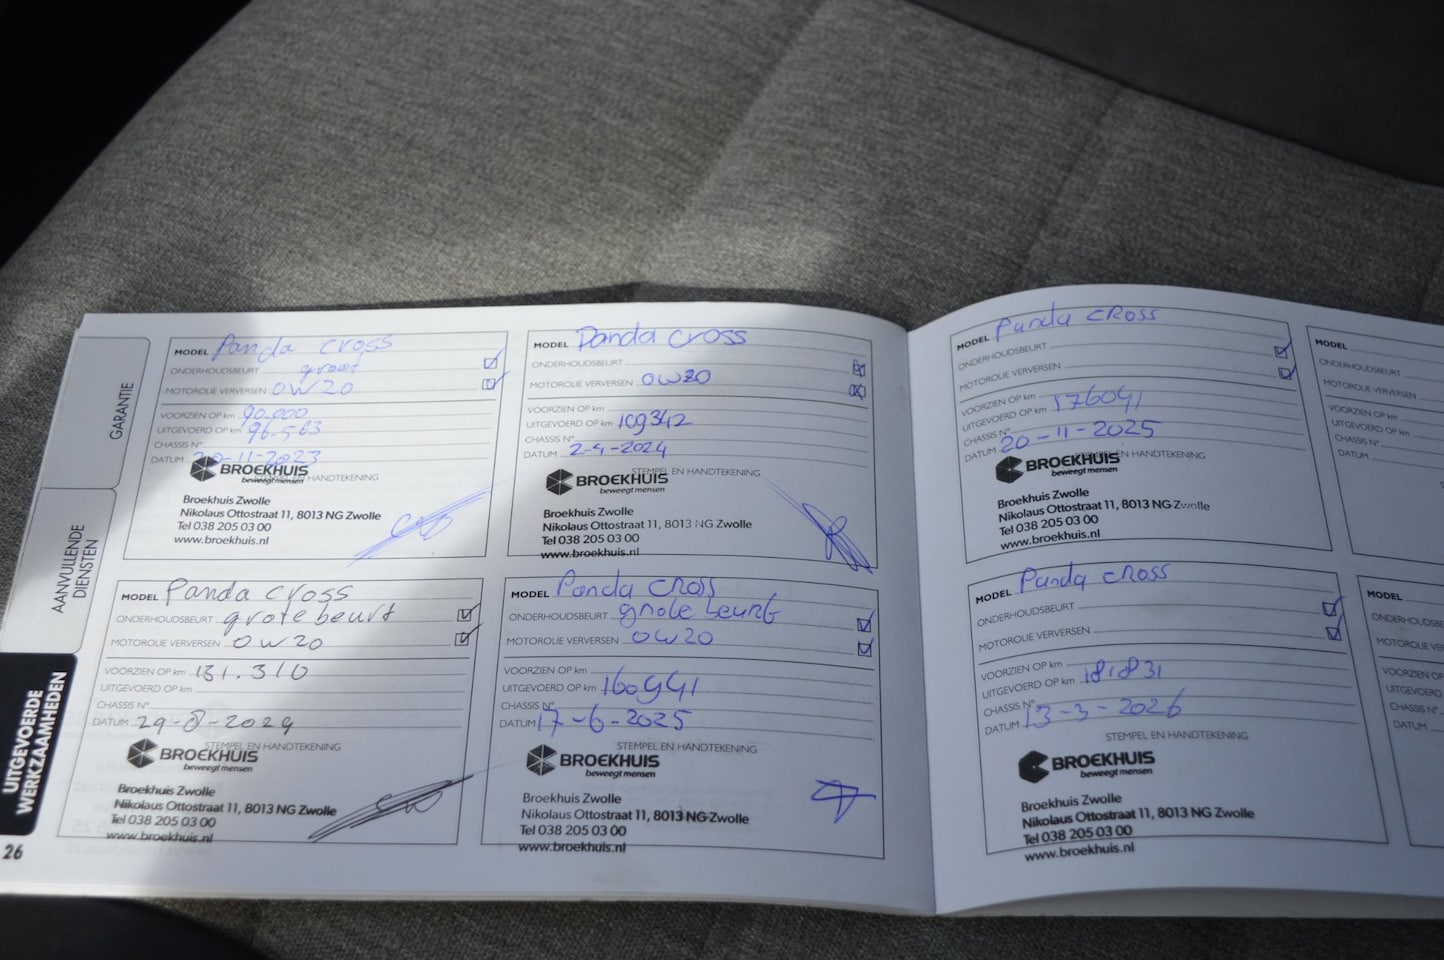 GARANTIE
AANVULLENDE
DIENSTEN
UITGEVOERDE
WERKZAAMHEDEN
26
MODEL Panda cross
ONDERHOUDSBEURT groot
MOTOROLIE VERVERSEN 0W20
VOORZIEN OP km 90.000
UITGEVOERD OP km 96.563
CHASSIS N°
DATUM 20-11-2023
STEMPEL EN HANDTEKENING
BROEKHUIS
beweegt mensen
Broekhuis Zwolle
Nikolaus Ottostraat 11, 8013 NG Zwolle
Tel 038 205 03 00
www.broekhuis.nl
MODEL Panda cross
ONDERHOUDSBEURT
MOTOROLIE VERVERSEN 0W20
VOORZIEN OP km
UITGEVOERD OP km 109342
CHASSIS N°
DATUM 2-4-2024
STEMPEL EN HANDTEKENING
BROEKHUIS
beweegt mensen
Broekhuis Zwolle
Nikolaus Ottostraat 11, 8013 NG Zwolle
Tel 038 205 03 00
www.broekhuis.nl
MODEL Panda cross
ONDERHOUDSBEURT grote beurt
MOTOROLIE VERVERSEN 0W20
VOORZIEN OP km 131.310
UITGEVOERD OP km
CHASSIS N°
DATUM 29-8-2024
STEMPEL EN HANDTEKENING
BROEKHUIS
beweegt mensen
Broekhuis Zwolle
Nikolaus Ottostraat 11, 8013 NG Zwolle
Tel 038 205 03 00
www.broekhuis.nl
MODEL Panda cross
ONDERHOUDSBEURT grote beurt
MOTOROLIE VERVERSEN 0W20
VOORZIEN OP km
UITGEVOERD OP km 160941
CHASSIS N°
DATUM 17-6-2025
STEMPEL EN HANDTEKENING
BROEKHUIS
beweegt mensen
Broekhuis Zwolle
Nikolaus Ottostraat 11, 8013 NG Zwolle
Tel 038 205 03 00
www.broekhuis.nl
MODEL Panda cross
ONDERHOUDSBEURT
MOTOROLIE VERVERSEN
VOORZIEN OP km
UITGEVOERD OP km 176041
CHASSIS N°
DATUM 20-11-2025
STEMPEL EN HANDTEKENING
BROEKHUIS
beweegt mensen
Broekhuis Zwolle
Nikolaus Ottostraat 11, 8013 NG Zwolle
Tel 038 205 03 00
www.broekhuis.nl
MODEL Panda cross
ONDERHOUDSBEURT
MOTOROLIE VERVERSEN
VOORZIEN OP km 181831
UITGEVOERD OP km
CHASSIS N°
DATUM 13-3-2026
STEMPEL EN HANDTEKENING
BROEKHUIS
beweegt mensen
Broekhuis Zwolle
Nikolaus Ottostraat 11, 8013 NG Zwolle
Tel 038 205 03 00
www.broekhuis.nl
MODEL
ONDERHOUDSBEURT
MOTOROLIE VERVERSEN
VOORZIEN OP km
UITGEVOERD OP km
CHASSIS N°
DATUM
MODEL
ONDERHOUDSBE
MOTOROLIE VE
VOORZIEN OP
UITGEVOERD
CHASSIS N°
DATUM